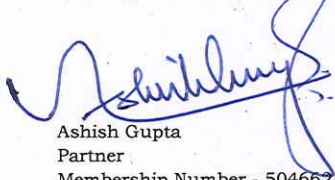 Ashish Gupta
Partner
Membership Number - 504662